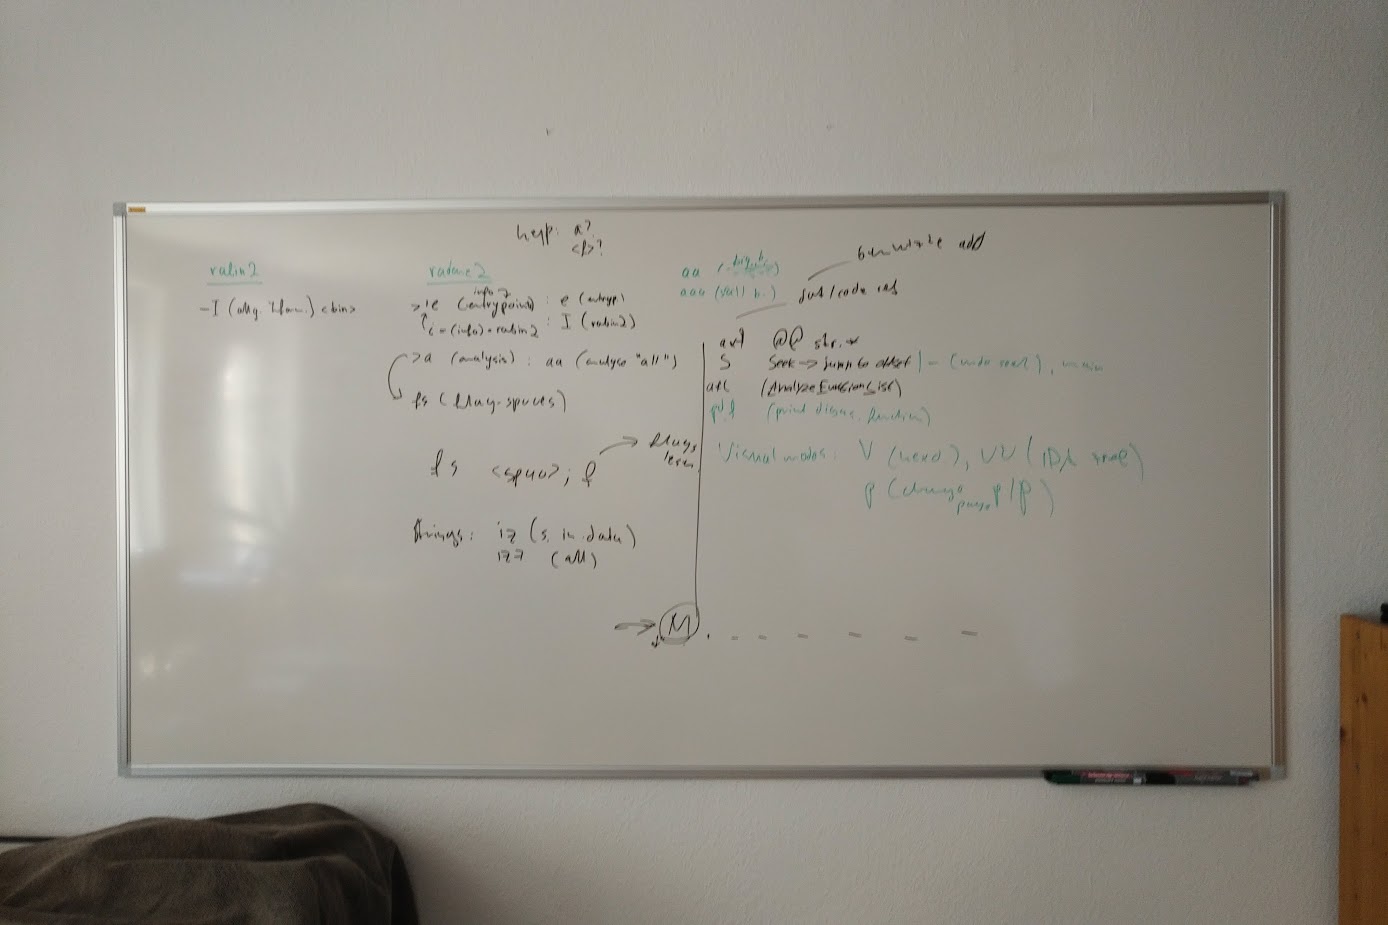 help: a?
<f>?
rabin2
-I (allg. Infom.) <bin>
radare2
info?
>ie (entrypoint) : e (entryp)
i = (info) = rabin2 : I (rabin2)
>a (analysis) : aa (analyse "all")
fs (flag-spaces)
fs <space>; f
flags
Strings: iz (s. in .data)
izz (all)
M
aa
aaa (full b.)
add
/code ref
axt @@ str.*
S Seek -> jump to offset | - (undo seek), main
afl (AnalyzeFunctionList)
pdf (print disass. function)
Visual modes: V (hexd), VV (IDA
p (change p/P)